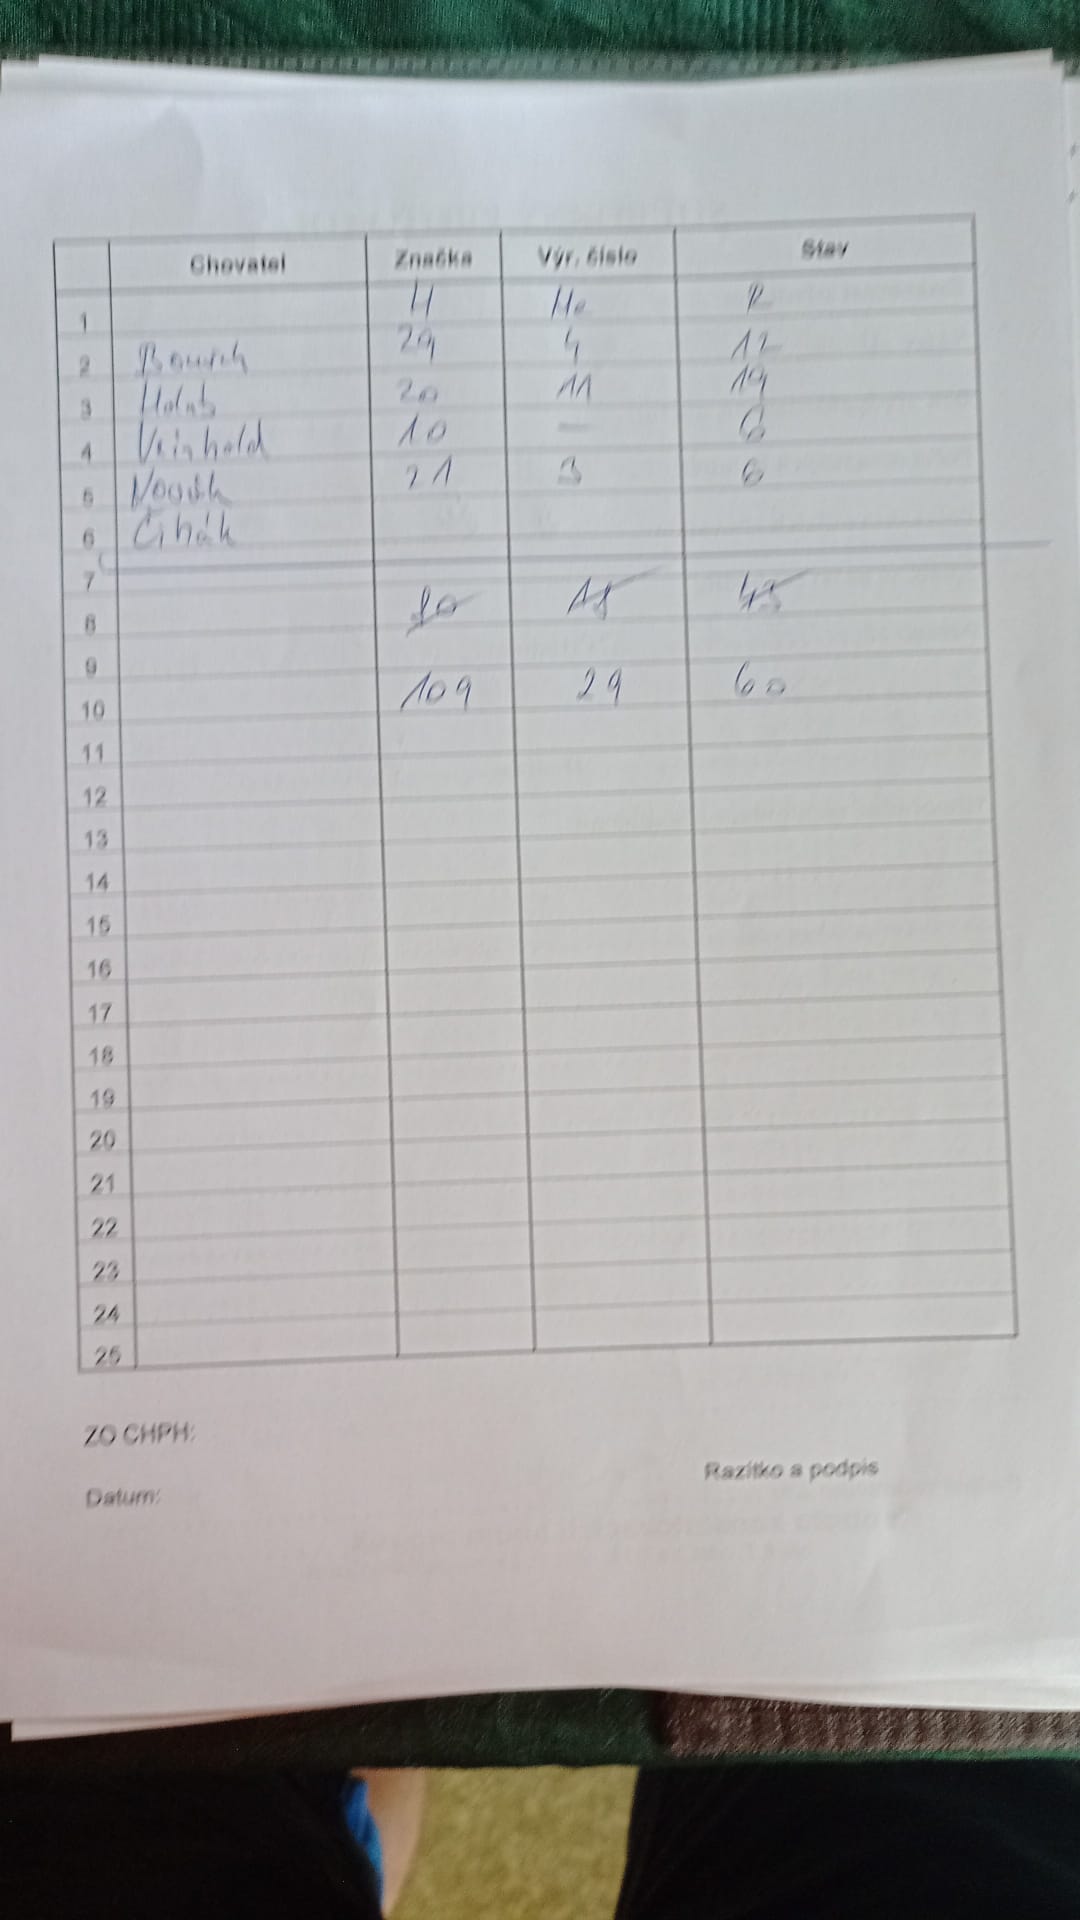 Chovatel Značka Výr. číslo Stav
1 H Ho R
2 29 4 12
3 Holub 20 11 19
4 Veinhold 10 – 6
5 Novák 21 3 6
6 Čihák
7
8 80 45
9
10 109 29 60
11
12
13
14
15
16
17
18
19
20
21
22
23
24
25
ZO CHPH:
Razítko a podpis
Datum: